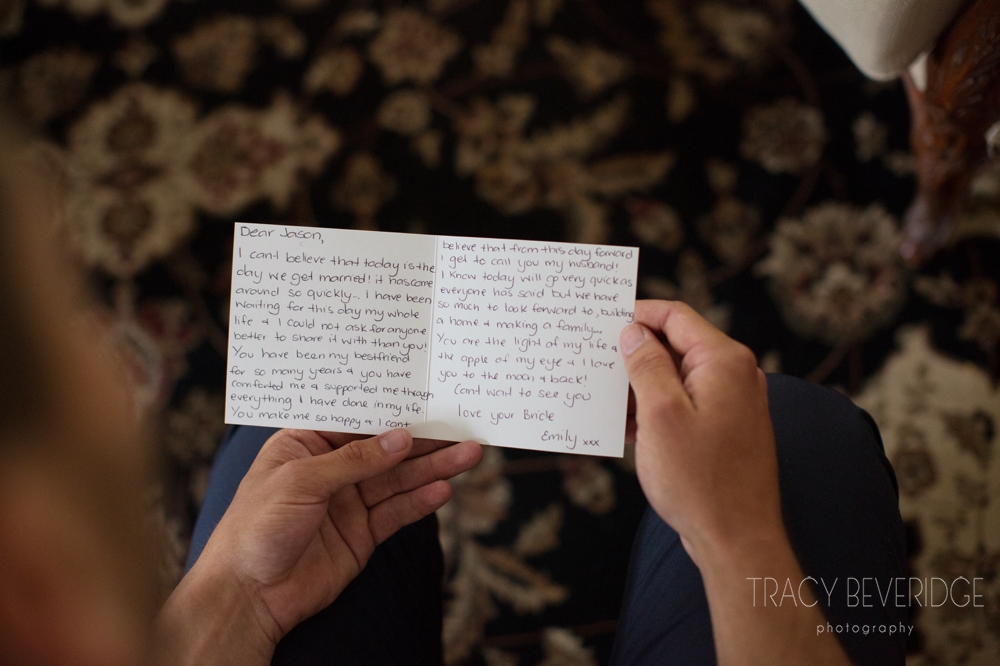 Dear Jason,
I can't believe that today is the
day we get married! it has come
around so quickly... I have been
waiting for this day my whole
life & I could not ask for anyone
better to share it with than you!
You have been my bestfriend
for so many years & you have
comforted me & supported me through
everything I have done in my life.
You make me so happy & I cant
believe that from this day forward
i get to call you my husband!
I know today will go very quick as
everyone has said but we have
so much to look forward to, building
a home & making a family...
You are the light of my life &
the apple of my eye & I love
you to the moon & back!
Cant wait to see you
love your Bride
Emily xxx
TRACY BEVERIDGE
photography